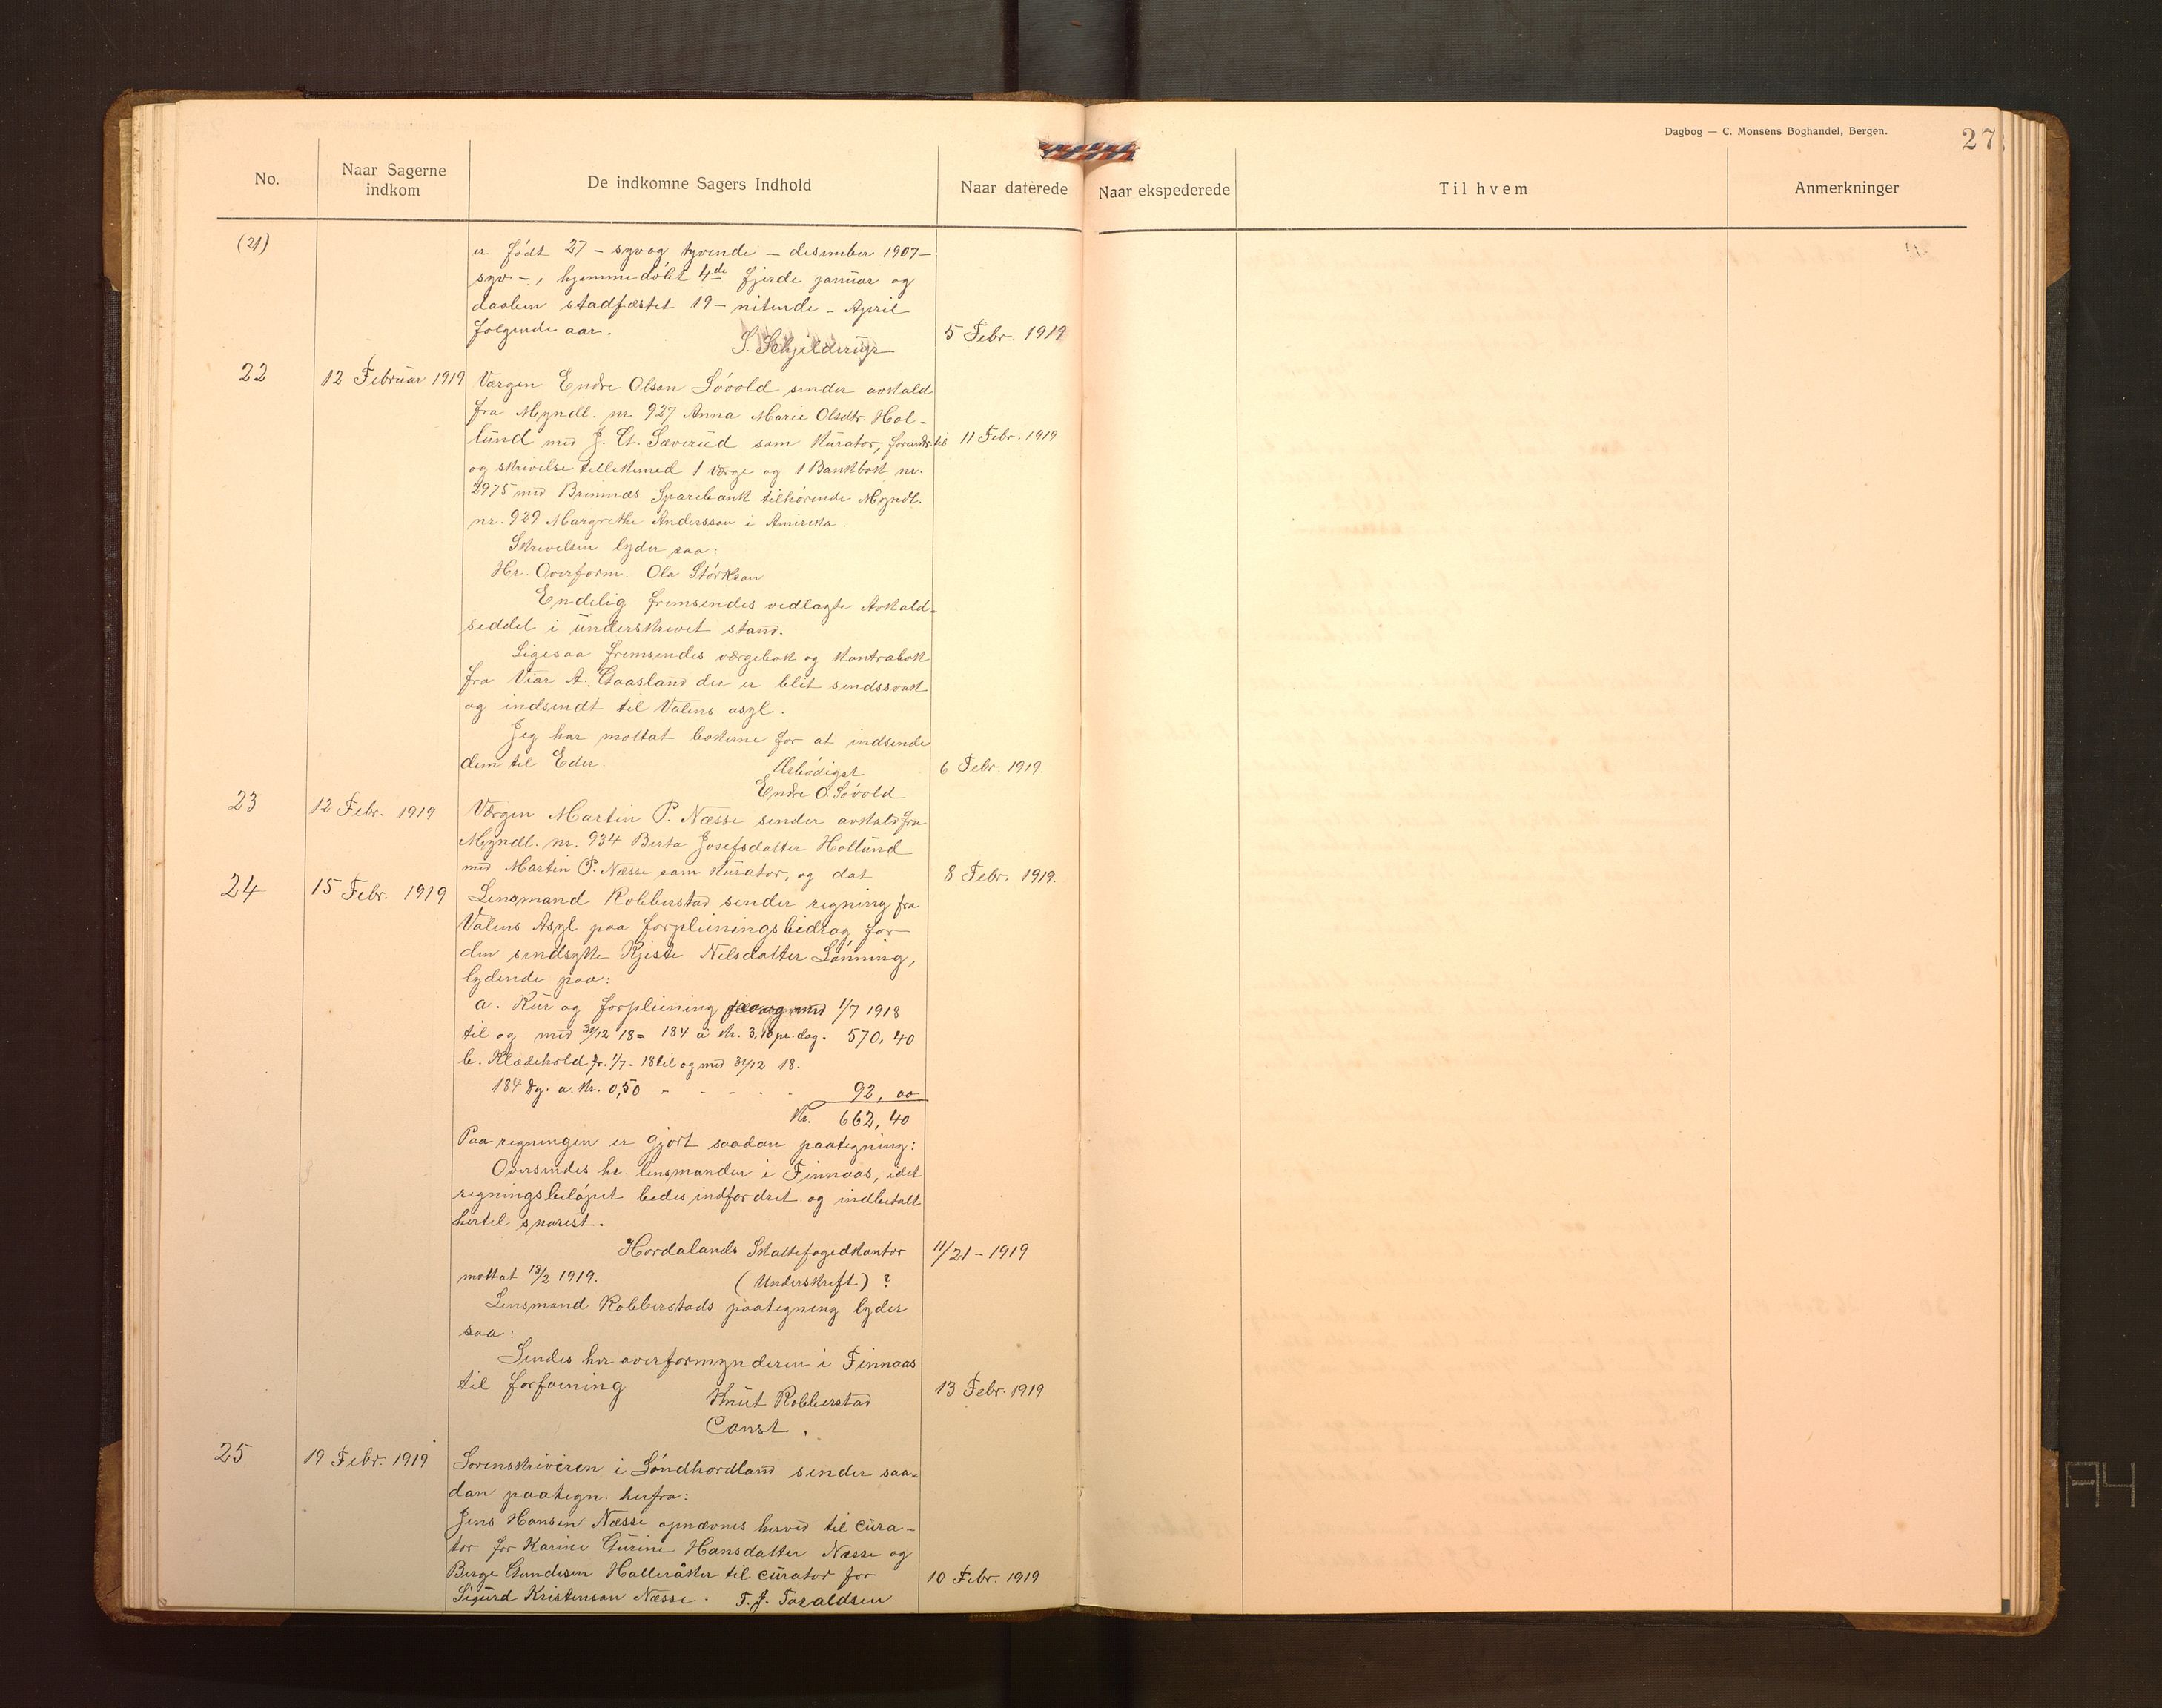 Dagbog — C. Monsens Boghandel, Bergen.
27
No.
Naar Sagerne indkom
De indkomne Sagers Indhold
Naar daterede
Naar ekspederede
Til hvem
Anmerkninger
(21)
er født 27 – syvog tyvende – desember 1907 –
syv –, hjemmedøbt 4de fjerde januar og
daaben stadfæstet 19 – nitende – April
følgende aar.
S. Schjelderup
5 Febr. 1919
22
12 Februar 1919
Værgen Endre Olson Løvold sender avkald
fra Myndl. nr. 927 Anna Marie Olsdtr. Hol-
lund med J. G. Sæverud som kurator, forandr. til
11 Febr. 1919
og skrivelse tillikemed 1 værge og 1 Bankbok nr.
2975 med Bremnæs Sparebank tilhørende Myndl.
nr. 929 Margrethe Andersson i Amerika.
Skrivelsen lyder saa:
Hr. Overform. Ola Størkson
Endelig fremsendes vedlagte Avkald-
seddel i underskrevet stand.
Ligesaa fremsendes værgebok og kontrabok
fra Viar A. Gaasland der er blit sindssvak
og indsendt til Valens asyl.
Jeg har mottat bøkerne for at indsende
dem til Eder.
Ærbødigst
6 Febr. 1919.
Endre O. Løvold
23
12 Febr. 1919
Værgen Martin P. Næsse sender avkald fra
Myndl. nr. 934 Berta Josefsdatter Hollund
med Martin P. Næsse som kurator, og dat
8 Febr. 1919.
24
15 Febr. 1919
Lensmand Robberstad sender regning fra
Valens Asyl paa forpleiningsbidrag for
den sindsyke Kjeste Nelsdatter Lønning,
lydende paa:
a. Kur og forpleining 1/7 1918
til og med 31/12 18 = 184 à kr. 3,10 pr. dag. 570,40
b. Klædehold fr. 1/7 - 18 til og med 31/12 18.
184 Dg. a. kr. 0,50 - - - - - 92, 00
Kr. 662,40
Paa regningen er gjort saadan paategning:
Oversendes hr. lensmanden i Finnaas, idet
regningsbeløpet bedes indfordret og indbetalt
hertil snarest.
Hordalands Skattefogedkontor
11/21 – 1919
mottat 13/2 1919.
(Underskrift) ?
Lensmand Robberstads paategning lyder
saa:
Sendes hr overformynderen i Finnaas
til forføining
Knut Robberstad
13 Febr. 1919
Const.
25
19 Febr. 1919
Sorenskriveren i Søndhordland sender saa-
dan paategn. herfra:
Jens Hansen Næsse opnævnes herved til cura-
tor for Karine Gurine Hansdatter Næsse og
Berge Gundesen Halleråker til curator for
10 Febr. 1919
Sigurd Kristenson Næsse. T. J. Toraldsen